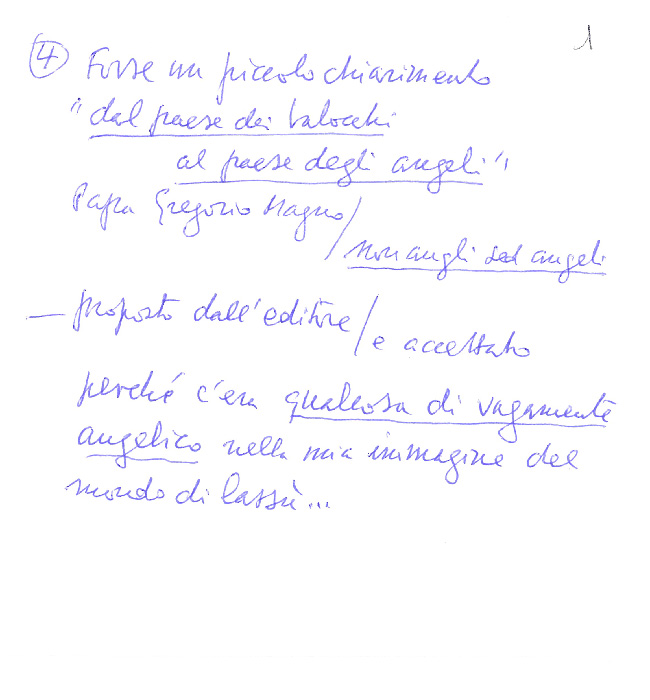 1
④ Forse un piccolo chiarimento
"dal paese dei balocchi
al paese degli angeli"
Papa Gregorio Magno/
/non angli sed angeli
— proposto dall'editore/
/e accettato
perché c'era qualcosa di vagamente
angelico nella mia immagine del
mondo di lassù...